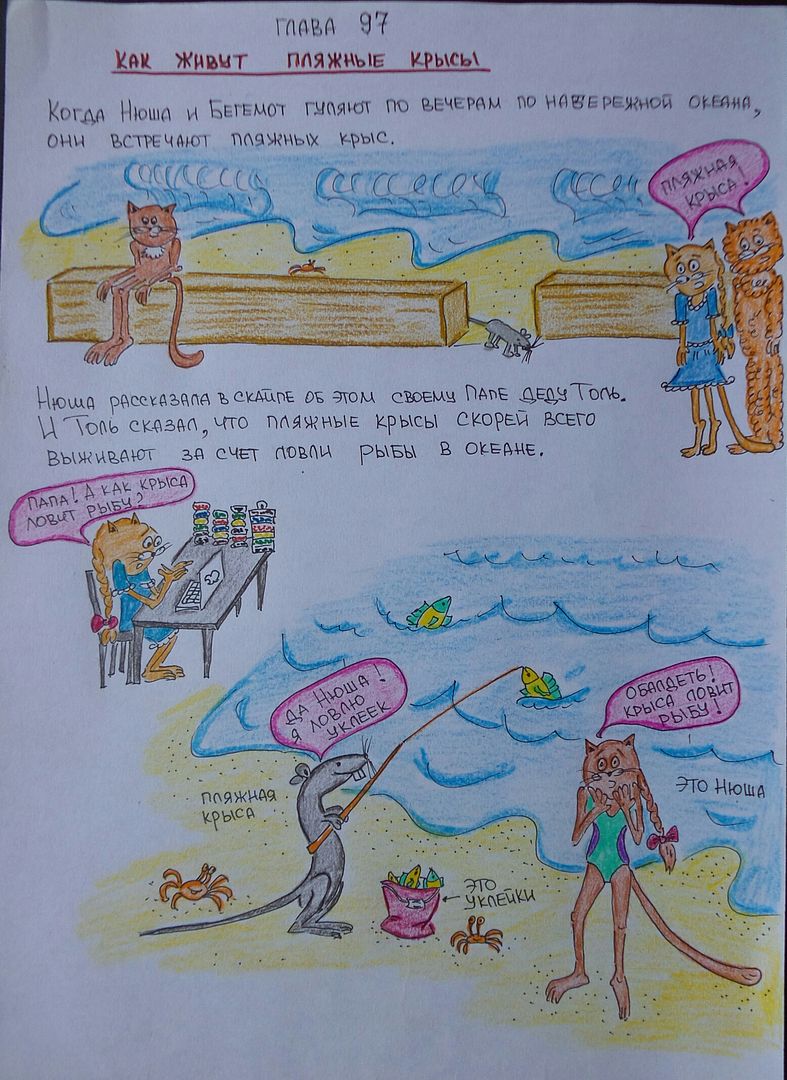 ГЛАВА 97
КАК ЖИВУТ ПЛЯЖНЫЕ КРЫСЫ
КОГДА НЮША И БЕГЕМОТ ГУЛЯЮТ ПО ВЕЧЕРАМ ПО НАБЕРЕЖНОЙ ОКЕАНА,
ОНИ ВСТРЕЧАЮТ ПЛЯЖНЫХ КРЫС.
ПЛЯЖНАЯ
КРЫСА!
НЮША РАССКАЗАЛА В СКАЙПЕ ОБ ЭТОМ СВОЕМУ ПАПЕ ДЕДУ ТОЛЬ.
И ТОЛЬ СКАЗАЛ, ЧТО ПЛЯЖНЫЕ КРЫСЫ СКОРЕЙ ВСЕГО
ВЫЖИВАЮТ ЗА СЧЕТ ЛОВЛИ РЫБЫ В ОКЕАНЕ.
ПАПА! А КАК КРЫСА
ЛОВИТ РЫБУ?
ДА НЮША!
Я ЛОВЛЮ
УКЛЕЕК
ОБАЛДЕТЬ!
КРЫСА ЛОВИТ
РЫБУ!
ПЛЯЖНАЯ
КРЫСА
ЭТО НЮША
ЭТО
УКЛЕЙКИ